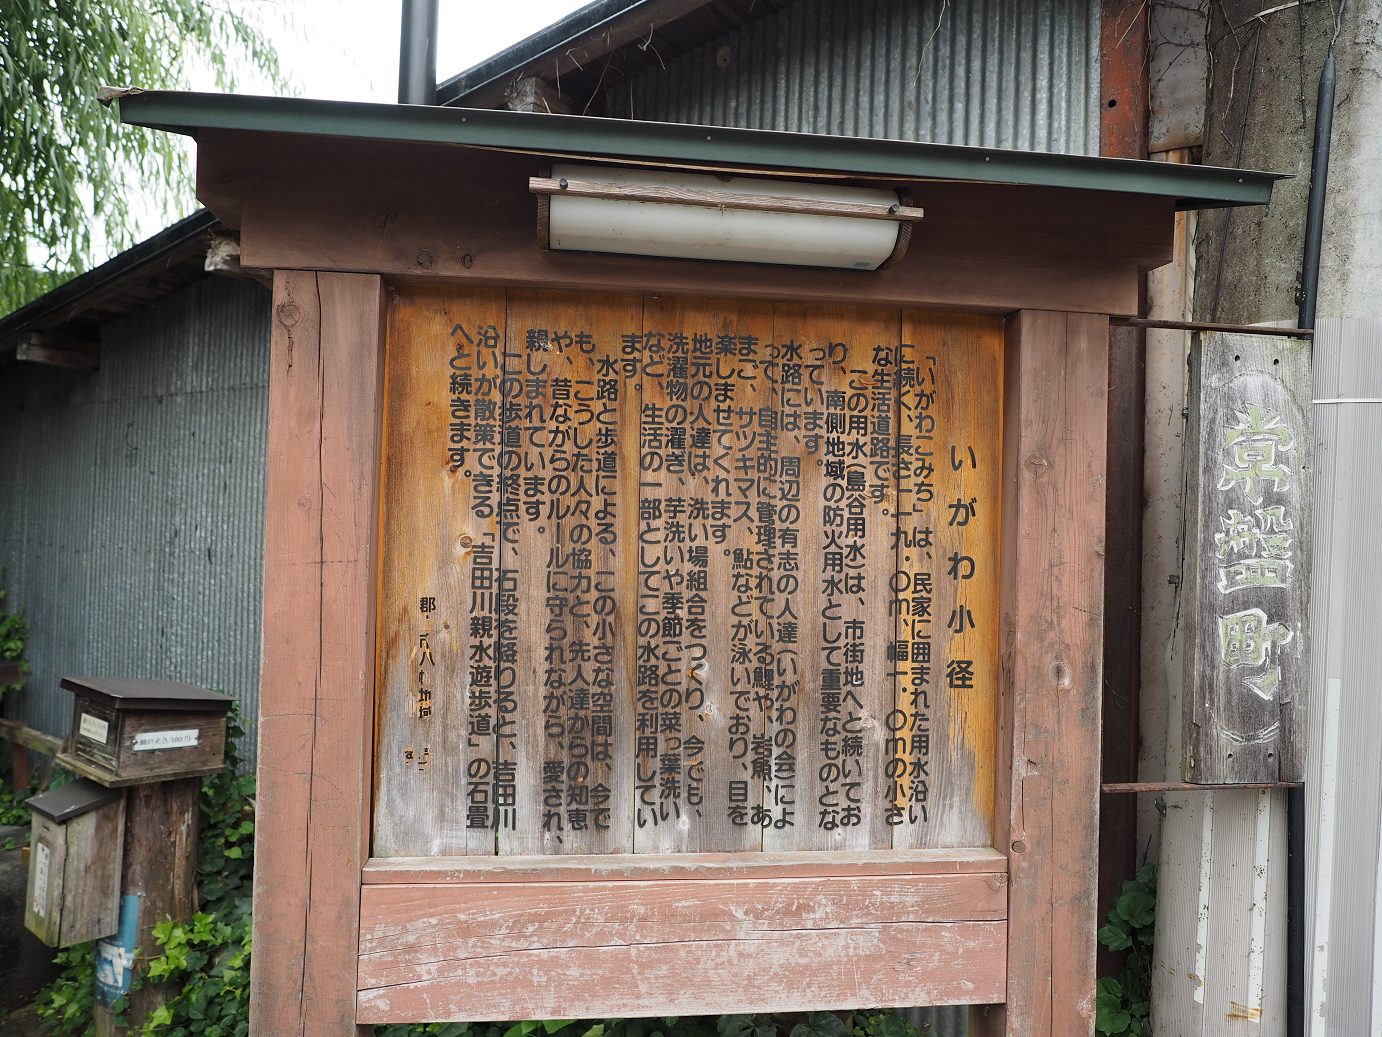 いがわ小径
「いがわこみち」は、民家に囲まれた用水沿い
に続く、長さ一一九・〇m、幅一・〇mの小さ
な生活道路です。
この用水(島谷用水)は、市街地へと続いてお
り、南側地域の防火用水として重要なものとな
っています。
水路には、周辺の有志の人達(いがわの会)によ
って、自主的に管理されている鯉や、岩魚、あ
まご、サツキマス、鮎などが泳いでおり、目を
楽しませてくれます。
地元の人達は、洗い場組合をつくり、今でも、
洗濯物の濯ぎ、芋洗いや季節ごとの菜っ葉洗い
など、生活の一部としてこの水路を利用してい
ます。
水路と歩道による、この小さな空間は、今で
も、こうした人々の協力と、先人達からの知恵
や、昔ながらのルールに守られながら、愛され、
親しまれています。
この歩道の終点で、石段を降りると、吉田川
沿いが散策できる「吉田川親水遊歩道」の石畳
へと続きます。
鯉のえさ100円